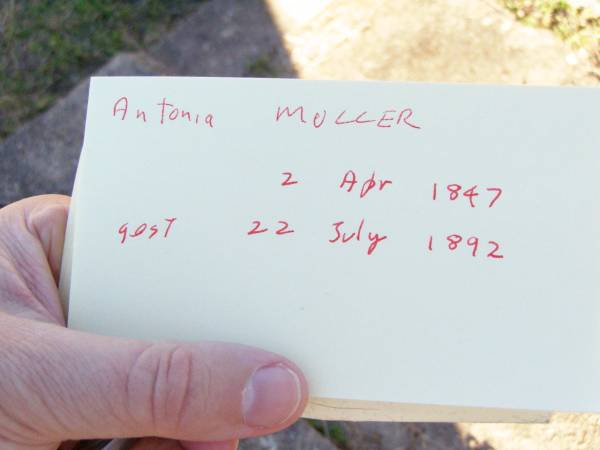 Antonia MULLER
2 Apr 1847
gest 22 July 1892